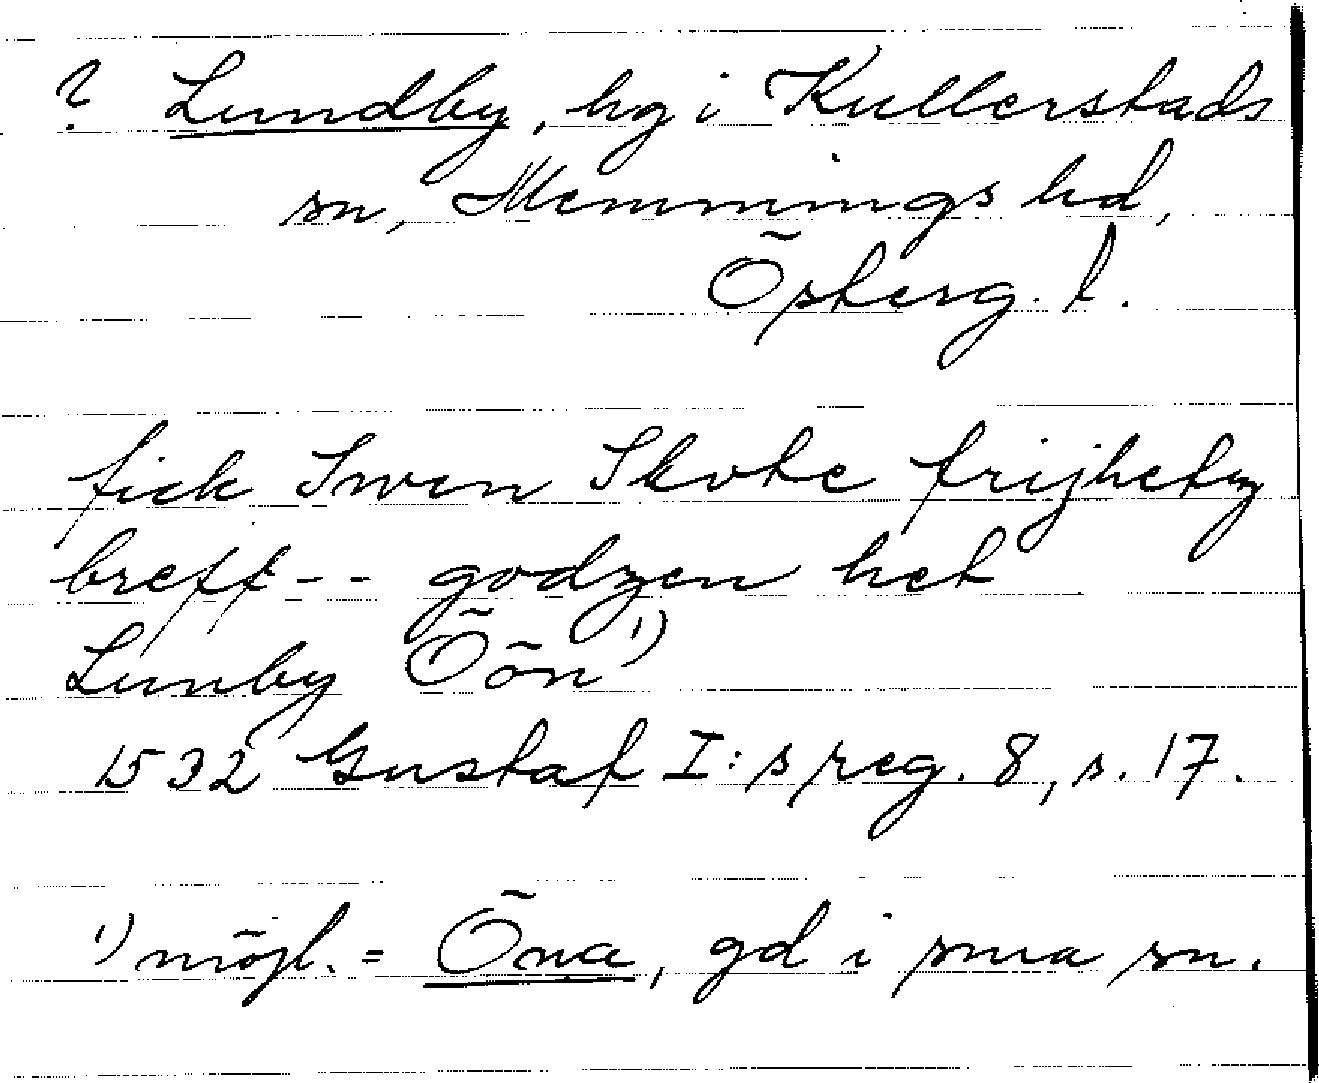 ? Lundby, hg i Kullerstads
sn, Memmings hd,
Östergötl. l.
fick Swen Skote frijhetz
breff -- godzen het
Lunby Öön 1)
1532 Gustaf I:s reg. 8, s. 17.
1) möjl. = Öna, gd i sma sn.